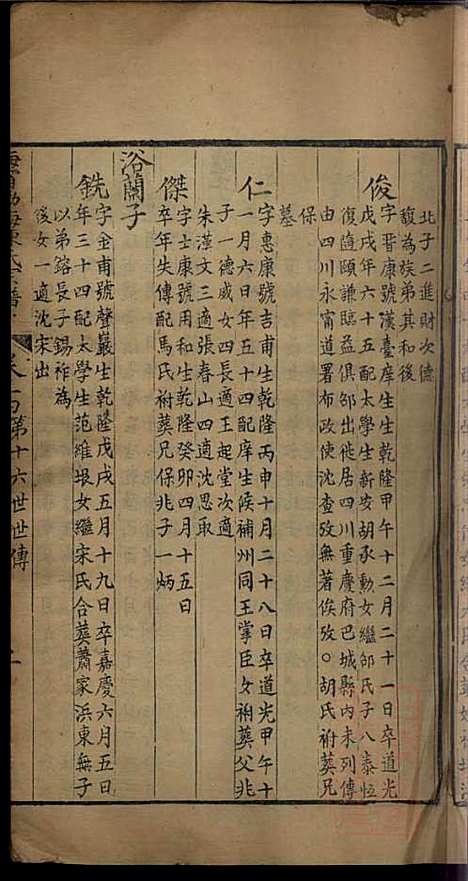 北子二進財次德
馥為族弟其和後
俊
字晋康號漢臺庠生生乾隆甲午十二月二十一日卒道光
戊戌年六十五配太學生新安胡承勲女繼邰氏子八泰恒
復偹頤謙臨益俱邰出徙居四川重慶府巴城縣内未列傳
由四川永甯道署布政使沈查攷無著俟攷○胡氏祔葬兄
保
墓
仁
字惠康號吉甫生乾隆丙申十月二十八日卒道光甲午十
一月六日年五十四配庠生候補州同王掌臣女祔葬父兆
子一德威女四長適王起堂次適
朱漢文三適張春山四適沈思取
傑
字士康號用和生乾隆癸卯四月十五日
卒年失傳配馬氏祔葬兄保兆子一炳
浴蘭子
銑
字金甫號聲巖生乾隆戊戌五月十九日卒嘉慶六月五日
年三十四配太學生范維垠女繼宋氏合葬蕭家浜東無子
以弟鎔長子錫祚為
後女一適沈宋出
卷一百第十六世世傳